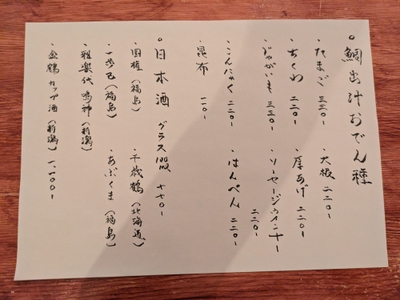 。鯛出汁おでん種
・たまご 三三〇- ・大根 二二〇-
・ちくわ 二二〇- ・厚あげ 二二〇-
・じゃがいも 三三〇- ・ソーセージウインナー 二二〇-
・こんにゃく 二二〇- ・はんぺん 二二〇-
・昆布 一一〇-
。日本酒 グラス 七七〇-
・国権(福島) ・千歳鶴(北海道)
(福島) ・あぶくま(福島)
・雅楽代 鳴神(新潟)
・金鶴 カップ酒(新潟) 一、一〇〇-